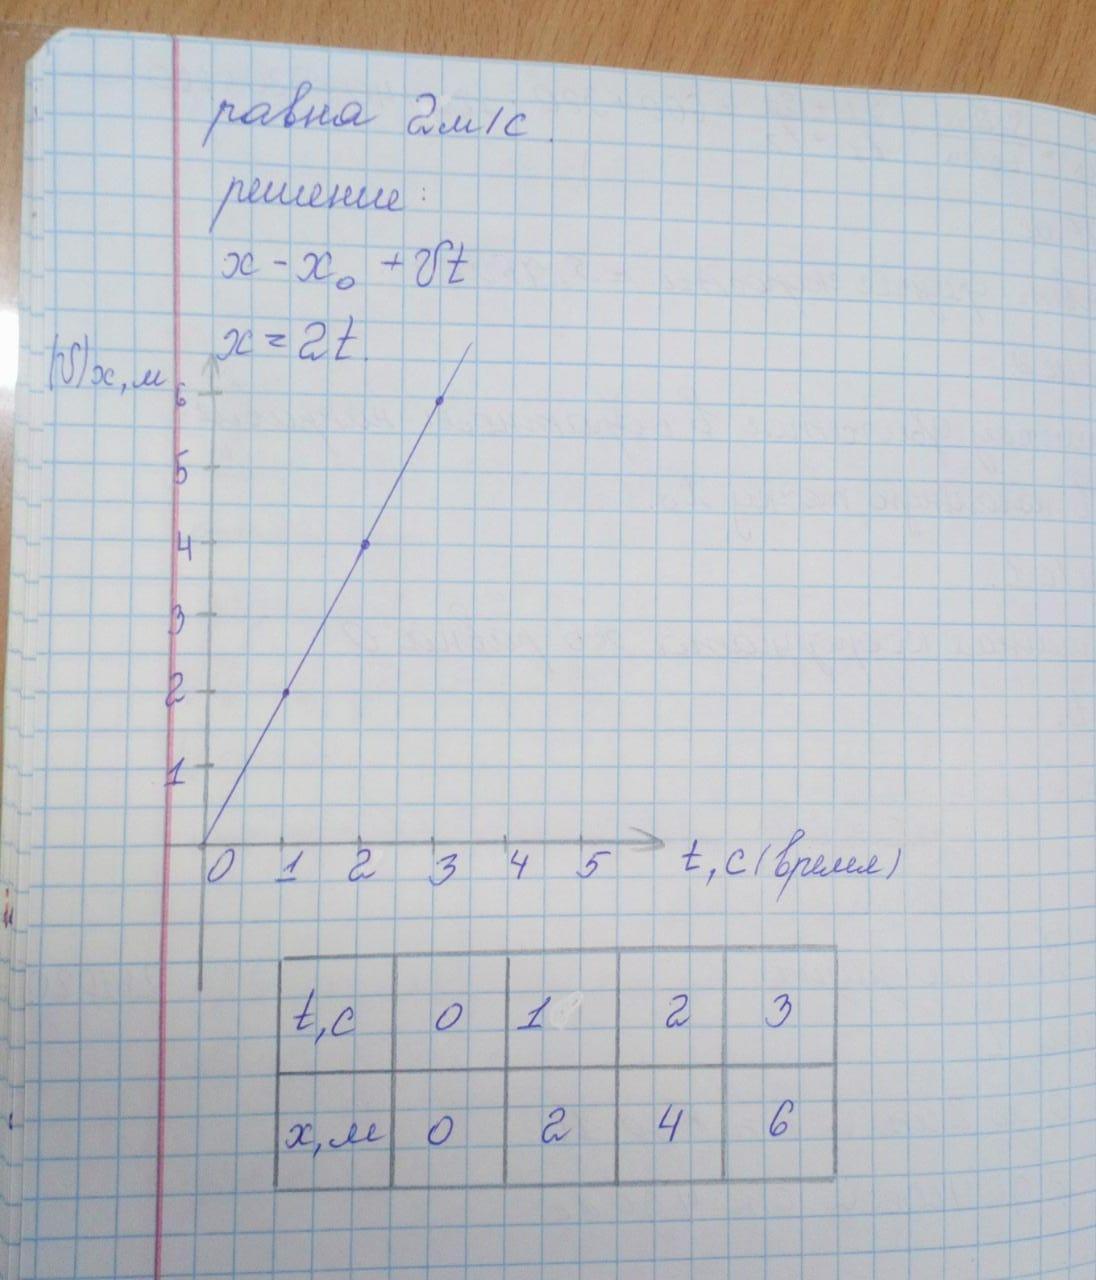 равна 2м/с.
решение:
x - x₀ + υt
x = 2t.
(υ)x, м
6
5
4
3
2
1
0 1 2 3 4 5 t, с (время)
t, с 0 1 2 3
x, м 0 2 4 6